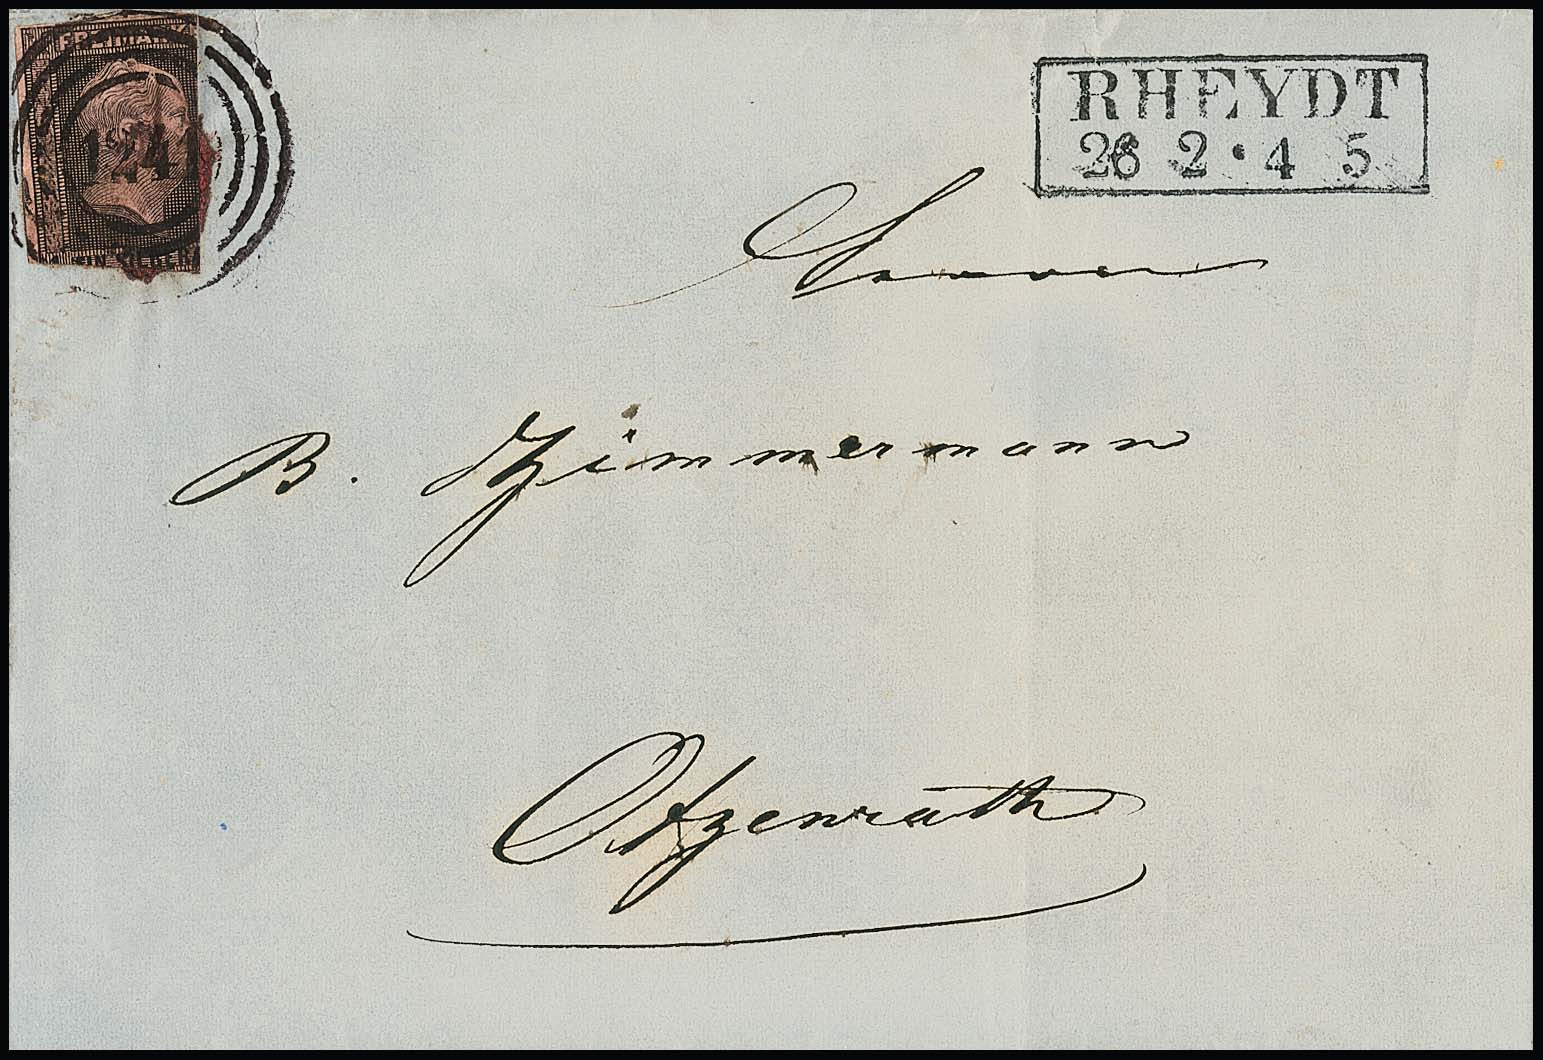 FREIMARK
1241
EIN SILBER
RHEYDT
26 2 · 4 5
B. Zimmermann
Otzenrath